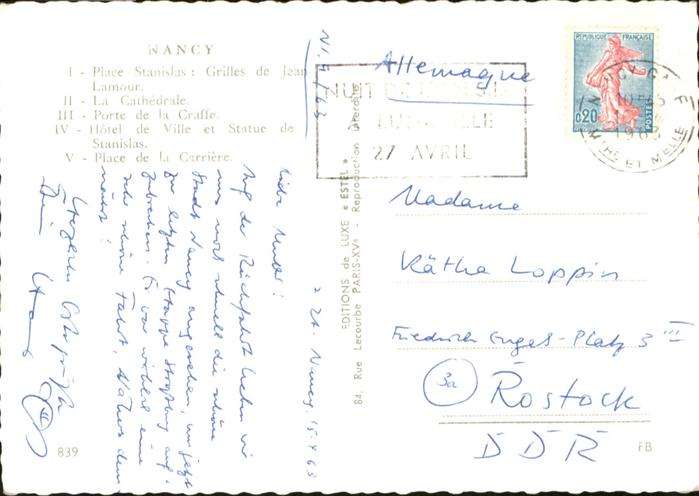 NANCY
I - Place Stanislas : Grilles de Jean
Lamour.
II - La Cathédrale.
III - Porte de la Craffe.
IV - Hôtel de Ville et Statue de
Stanislas.
V - Place de la Carrière.
z. Zt. Nancy, 15.4.63
Liebe Mutter!
Auf der Rückfahrt haben wir
uns noch schnell die schöne
Stadt Nancy angesehen, um jetzt
zur letzten Etappe Straßburg auf-
zubrechen. Es war wirklich eine
sehr schöne Fahrt. Näheres dem-
nächst!
Herzliche Ostergrüße
Dein
839
EDITIONS de LUXE « ESTEL »
84, Rue Lecourbe PARIS-XVe - Reproduction interdite
NUIT DE
27 AVRIL
REPUBLIQUE FRANÇAISE
0,20
POSTES
MTHE ET MELLE
Allemagne
Madame
Käthe Loppin
Friedrich-Engels-Platz 3 III
3a Rostock
DDR
FB